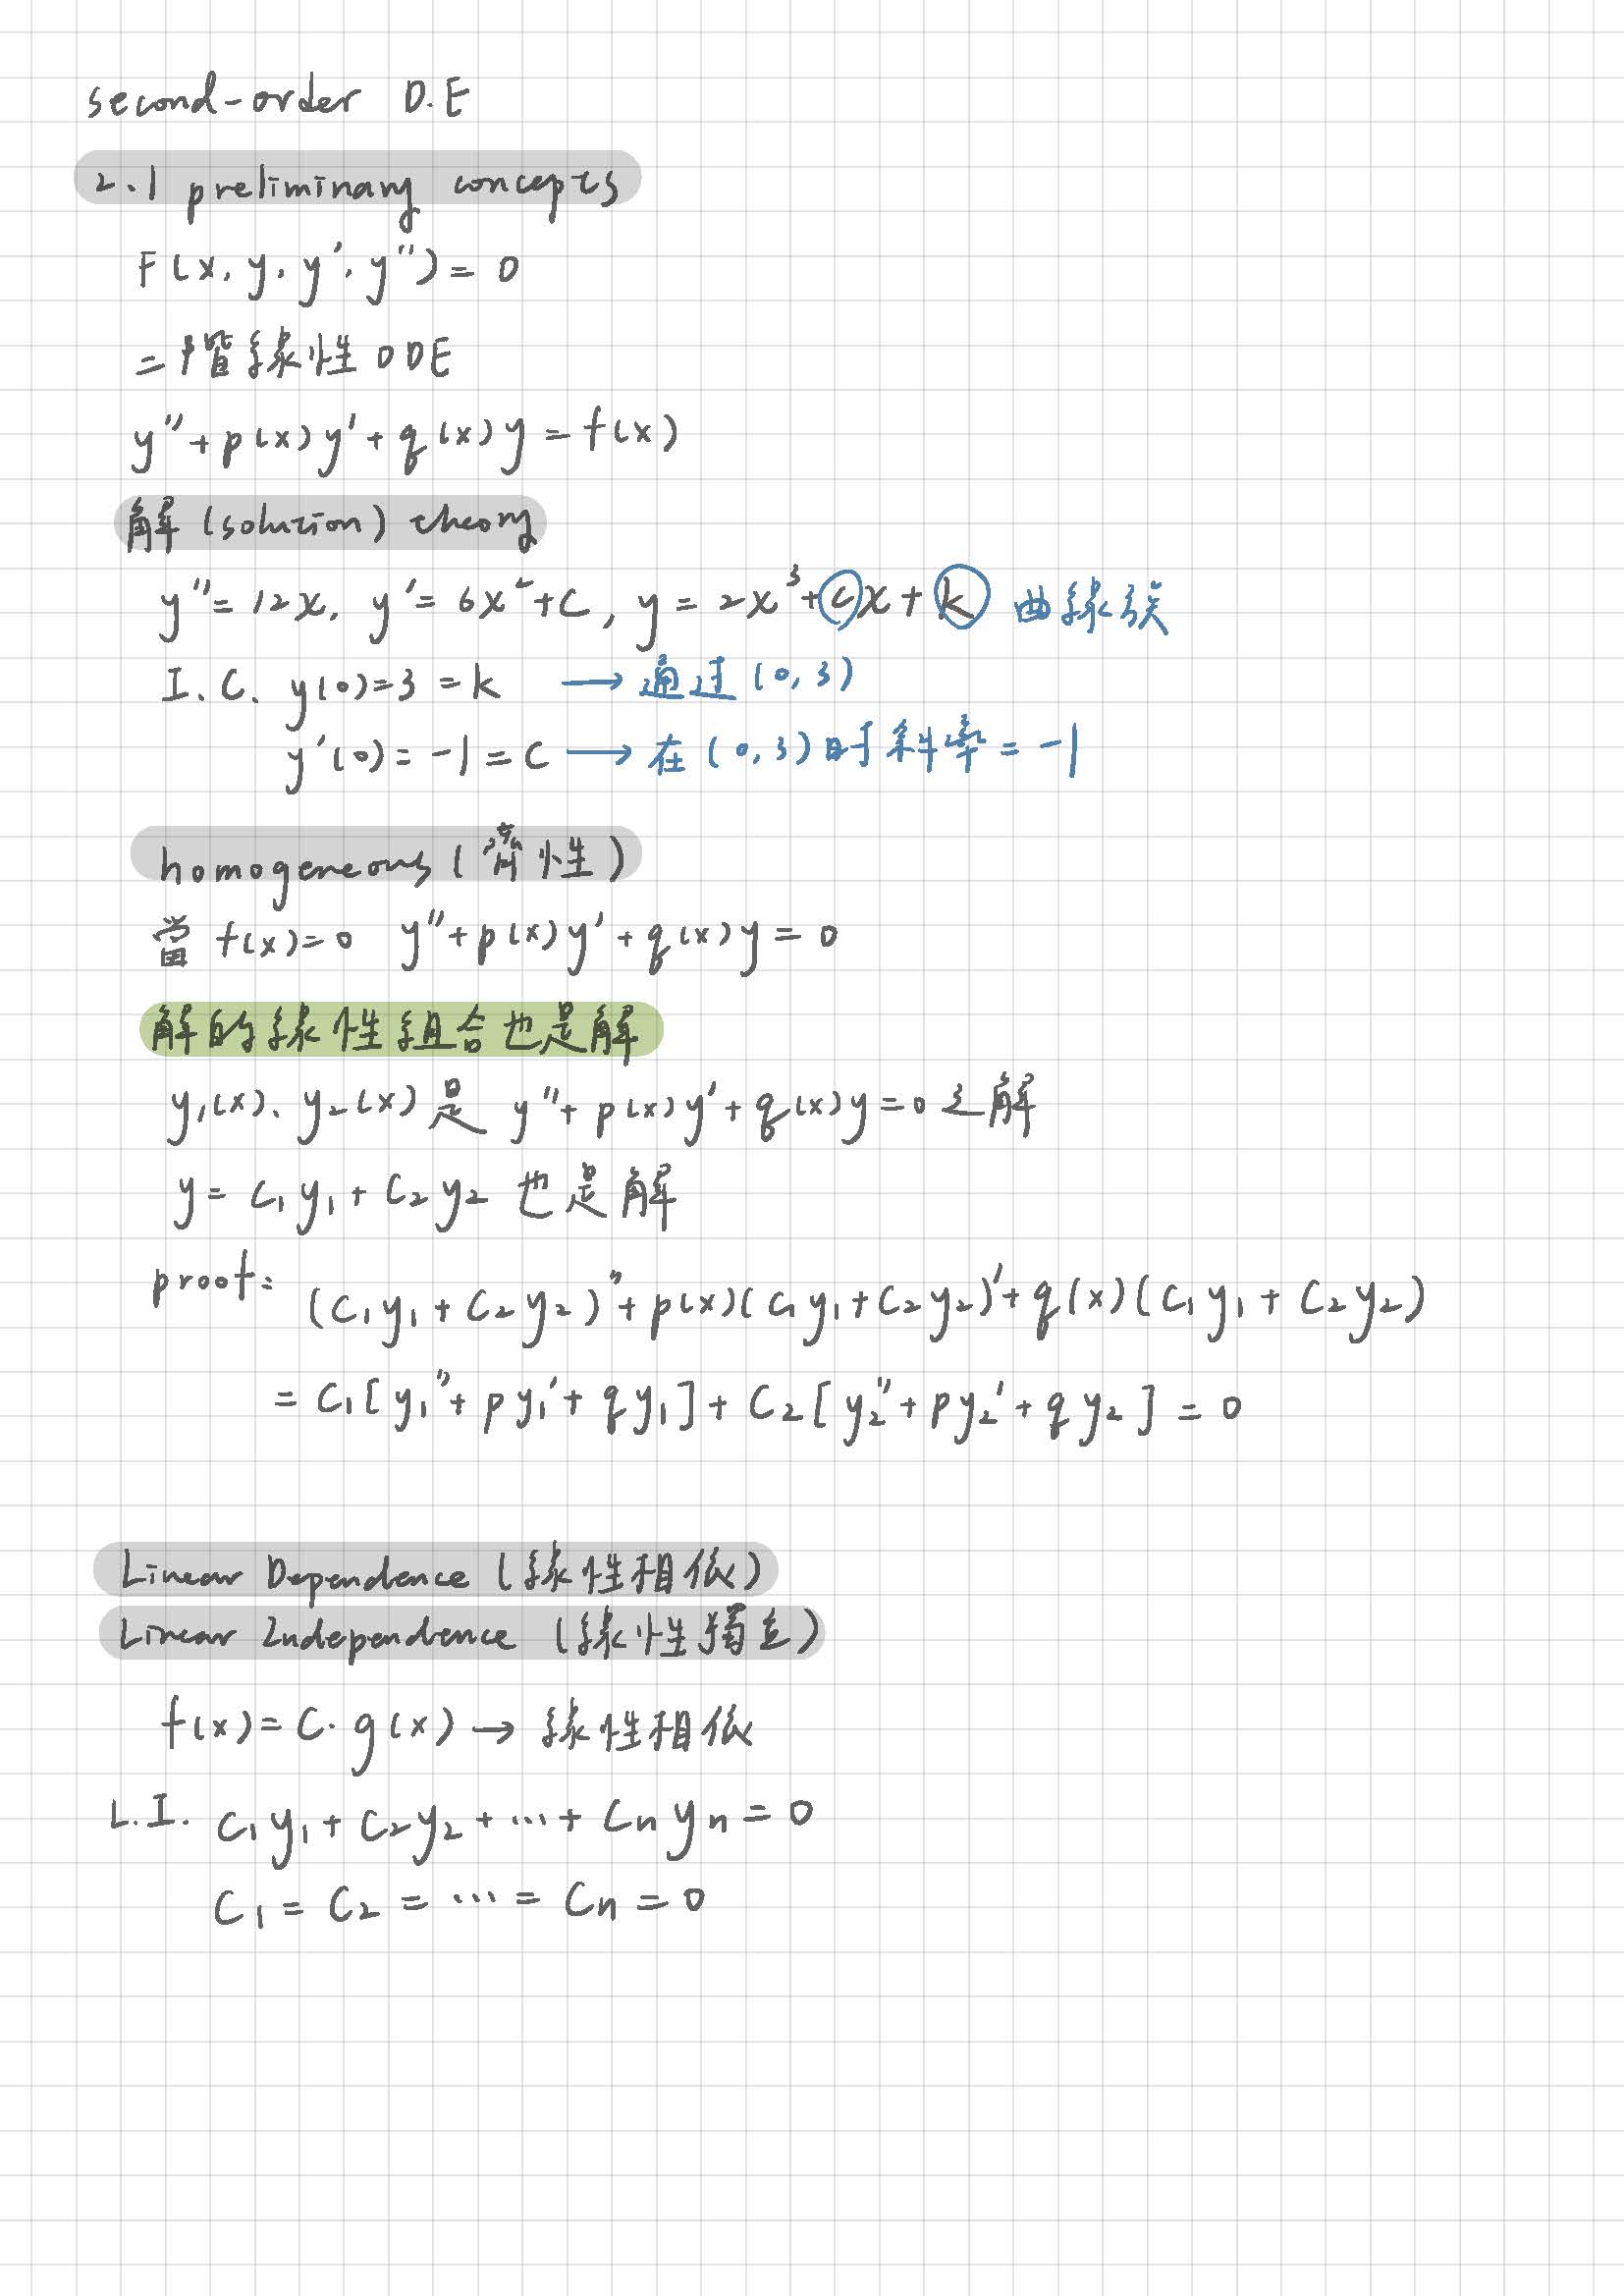 second-order D.E
2.1 preliminary concepts
F(x, y, y', y'') = 0
二階線性ODE
y'' + p(x)y' + q(x)y = f(x)
解(solution) theory
y'' = 12x, y' = 6x² + C, y = 2x³ + Cx + k 曲線族
I.C. y(0) = 3 = k → 通过(0,3)
y'(0) = -1 = C → 在(0,3)時斜率 = -1
homogeneous(齊性)
當 f(x)=0 y'' + p(x)y' + q(x)y = 0
解的線性組合也是解
y₁(x)、y₂(x)是 y'' + p(x)y' + q(x)y = 0 之解
y = C₁y₁ + C₂y₂ 也是解
proof: (C₁y₁ + C₂y₂)'' + p(x)(C₁y₁ + C₂y₂)' + q(x)(C₁y₁ + C₂y₂)
= C₁[y₁'' + py₁' + qy₁] + C₂[y₂'' + py₂' + qy₂] = 0
Linear Dependence (線性相依)
Linear Independence (線性獨立)
f(x) = C · g(x) → 線性相依
L.I. C₁y₁ + C₂y₂ + ⋯ + Cₙyₙ = 0
C₁ = C₂ = ⋯ = Cₙ = 0